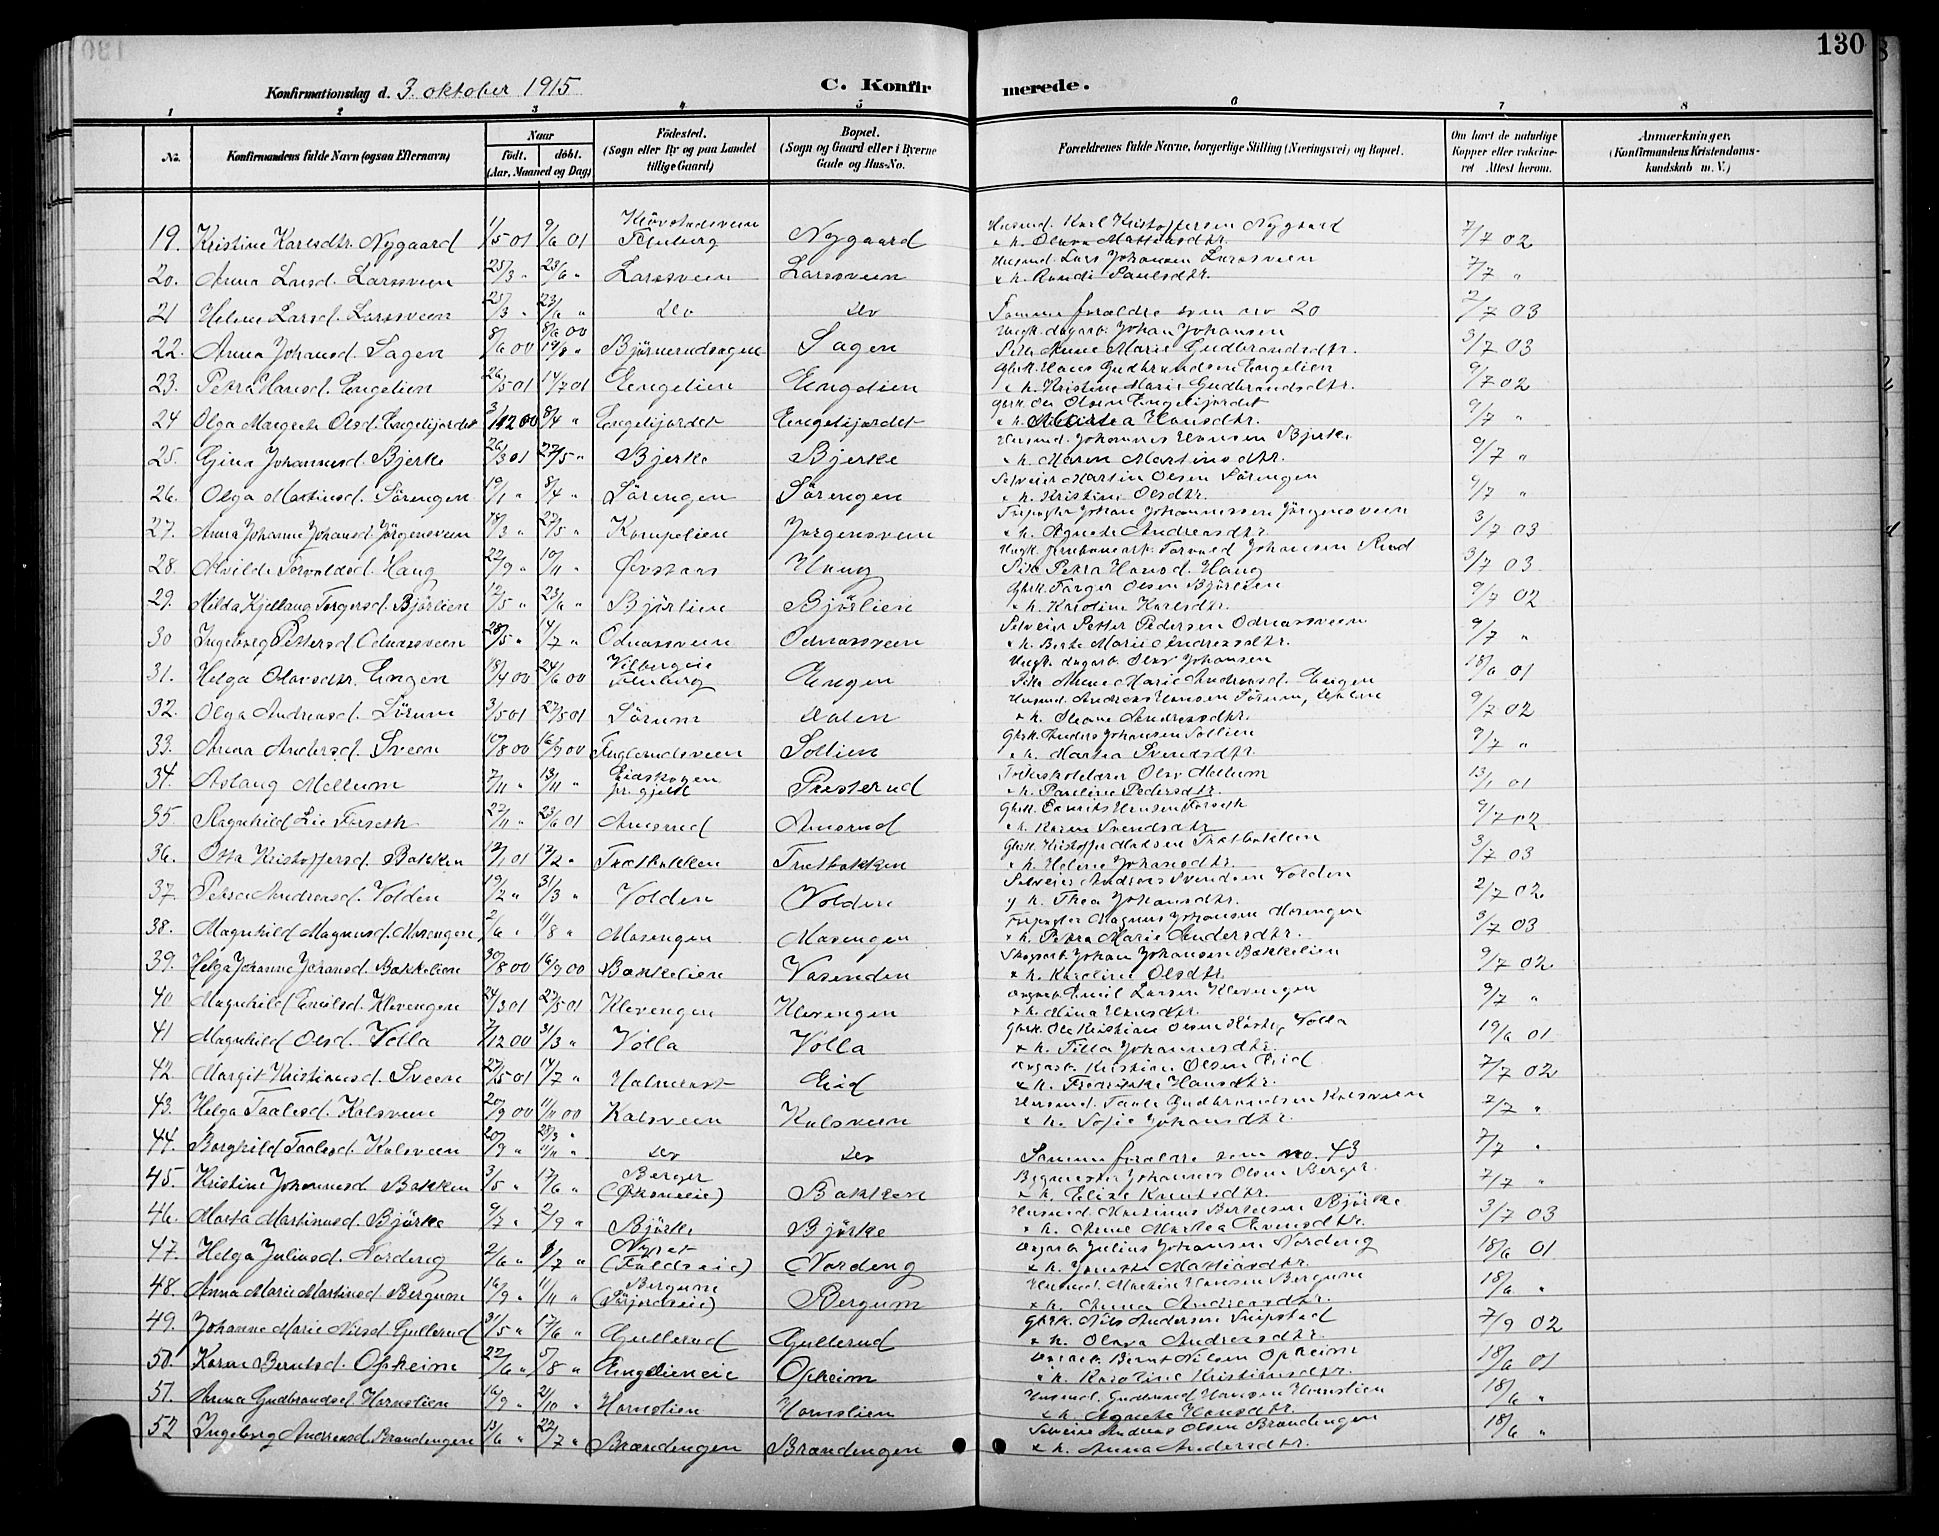 130
Konfirmationsdag d. 3. oktober 1915 C. Konfirmerede.
1 2 3 4 5 6 7 8
No. Konfirmandens fulde Navn (ogsaa Efternavn) Naar födt. döbt. (Aar, Maaned og Dag) Födested. (Sogn eller By og paa Landet tillige Gaard) Bopæl. (Sogn og Gaard eller i Byerne Gade og Hus-No. Forældrenes fulde Navne, borgerlige Stilling (Næringsvei) og Bopæl. Om havt de naturlige Kopper eller vakcineret Attest herom. Anmærkninger. (Konfirmandens Kristendomskundskab m. V.)
19. Kristine Karlsdtr. Nygaard 1/5 01 9/6 01 Nygaard Husmd. Karl Kristoffersen Nygaard 7/7 02
& h. Olava Mattiasdtr.
20. Anna Larsd. Larsveen 25/3 " 23/6 " Larsveen Larsveen Husmd. Lars Johansen Larsveen 7/7 "
& h. Randi Paulsdtr.
21 Helene Larsd. Larsveen 25/3 " 23/6 " Do Do Samme forældre som no 20 2/7 03
22. Anna Johansd. Sagen 8/6 00 Sagen Ungk. dagarb. Johan Johansen 3/7 03
Pike Anne Marie Gudbrandsdtr.
23. Petra Hansd. Engelien 26/5 01 14/7 01 Engelien Engelien Gbrk. Hans Gudbrandsen Engelien 9/7 02
& h. Kristine Marie Gudbrandsdtr.
24 Olga Margrete Olsd. Engelijordet 8/4 " Engelijordet Engelijordet Gbrk. Ole Olsen Engelijordet 9/7 "
& h. Martea Hansdtr.
25. Gina Johannesd. Bjerke 26/3 01 27/5 " Bjerke Bjerke Husmd. Johannes Hansen Bjerke 9/7 "
& h. Maren Martinsdtr.
26. Olga Martinsd. Sörengen 19/1 " 8/4 " Sörengen Sörengen Selveier Martin Olsen Sörengen 9/7 "
& h. Kristine Olsdtr.
27. Anna Johanne Johansd. Jörgensveen 14/3 " 27/5 " Kompelien Jörgensveen Johan Johannessen Jörgensveen 3/7 03
& h. Agnete Andreasdtr.
28. Alvilde Torvaldsd. Haug 22/9 " 10/11 " Haug Ungk. jernbanearb. Torvald Johansen Rud 3/7 03
Pike Petra Hansd. Haug
29. Milda Kjellaug Torgersd. Björlien 12/5 " 23/6 " Björlien Björlien Gbrk. Torger Olsen Björlien 9/7 02
& h. Karoline Karlsdtr.
30 Ingeborg Pettersd. Odnæsveen 28/5 " 14/7 " Odnæsveen Odnæsveen Selveier Petter Pedersen Odnæsveen 9/7 "
& h. Berte Marie Andreasdtr.
31. Helga Olavsdtr. Engen 18/4 00 24/6 00 Engen Ungk. dagarb. Olav Johansen 18/6 01
Pike Anne Marie Andreasd. Engen
32. Olga Andreasd. Sörum 3/5 01 27/5 01 Sörum Dalen Husmd. Andreas Hansen Sörum, Dalen 9/7 02
33. Anna Andersd. Sveen 10/8 00 16/9 00 Fuglerudsveen Sollien Gbrk. Anders Johansen Sollien 9/7 "
& h. Martea Svendsdtr.
34. Aslaug Mellum 7/11 " 13/11 " Eidskogen pr.gjeld Presterud Olav Mellum 13/1 01
& h. Pauline Pedersdtr.
35. Ragnhild Lie Forseth 27/11 " 23/6 01 Amsrud Amsrud Forseth 9/7 02
& h. Karen Svendsdtr
36. Kristoffersd. Bakken 12/1 01 17/2 " Trætbakken Trætbakken Gbrk. Kristoffer Madsen Trætbakken 3/7 03
& h. Helene Johansdtr.
37. Petra Andreasd. Volden 19/2 " 31/3 " Volden Volden Selveier Andreas Svendsen Volden 2/7 02
& h. Thea Johansdtr.
38. Magnhild Magnusd. Mosengen 2/6 " 11/8 " Mosengen Mosengen Magnus Johansen Mosengen 3/7 03
& h. Petra Marie Andersdtr.
39. Helga Johanne Johansd. Bakkelien 30/8 00 16/9 00 Bakkelien Vasenden Skogsarb. Johan Johansen Bakkelien 9/7 02
& h. Karoline Olsdtr.
40 Magnhild Emilsd. Klevengen 24/3 01 27/5 01 Klevengen Klevengen Dagarb. Emil Larsen Klevengen 9/7 "
& h. Mina Hansdtr.
41 Magnhild Olsd. Volla 7/12 00 31/3 " Volla Volla Gbrk. Ole Kristian Olsen Volla 19/6 01
& h. Tilla Johannesdtr.
42. Margit Kristiansd. Sveen 27/5 01 14/7 " Eid Dagarb. Kristian Olsen Eid 7/7 02
& h. Fredrikke Hansdtr.
43. Helga Taalesd. Kalsveen 20/9 00 11/11 00 Kalsveen Kalsveen Husmd. Taale Gudbrandsen Kalsveen 7/7 "
& h. Sofie Johansdtr.
44. Borghild Taalesd. Kalsveen 20/9 " 11/11 " Do Do Samme forældre som no. 43 7/7 "
45. Kristine Johannesd. Bakken 3/5 " 17/6 " Berger Bakken Bygmester Johannes Olsen Berger 7/7 "
& h. Elise Knutsdtr.
46. Marta Martinusd. Björke 9/7 " 2/9 " Björke Björke Husmd. Martinus Berntsen Björke 3/7 03
& h. Anne Martea Evensdtr.
47. Helga Juliusd. Nordeng 2/6 " 8/7 " (Foldseie) Nordeng Dagarb. Julius Johansen Nordeng 18/6 01
& h. Jonette Mattiasdtr.
48. Anna Marie Martinsd. Bergum 16/9 " 11/11 " Bergum Bergum Husmd. Martin Hansen Bergum 18/6 "
& h. Anna Andreasdtr.
49. Johanne Marie Nilsd. Gullerud 31/5 " 17/6 " Gullerud Gullerud Gbrk. Nils Andersen 7/9 02
& h. Olava Andreasdtr.
50. Karen Berntsd. Opheim 22/6 " 5/8 " Engelieneie Opheim Dagarb. Bernt Nilsen Opheim 18/6 01
& h. Karoline Kristiansdtr.
51. Anna Gudbrandsd. Hornslien 16/9 " 2/10 " Hornslien Hornslien Husmd. Gudbrand Hansen Hornslien 18/6 "
& h. Agnete Hansdtr.
52 Ingeborg Andreasd. Brandengen 13/6 " 22/7 " Brandengen Brandengen Selveier Andreas Olsen Brandengen 18/6 "
& h. Anna Andersdtr.